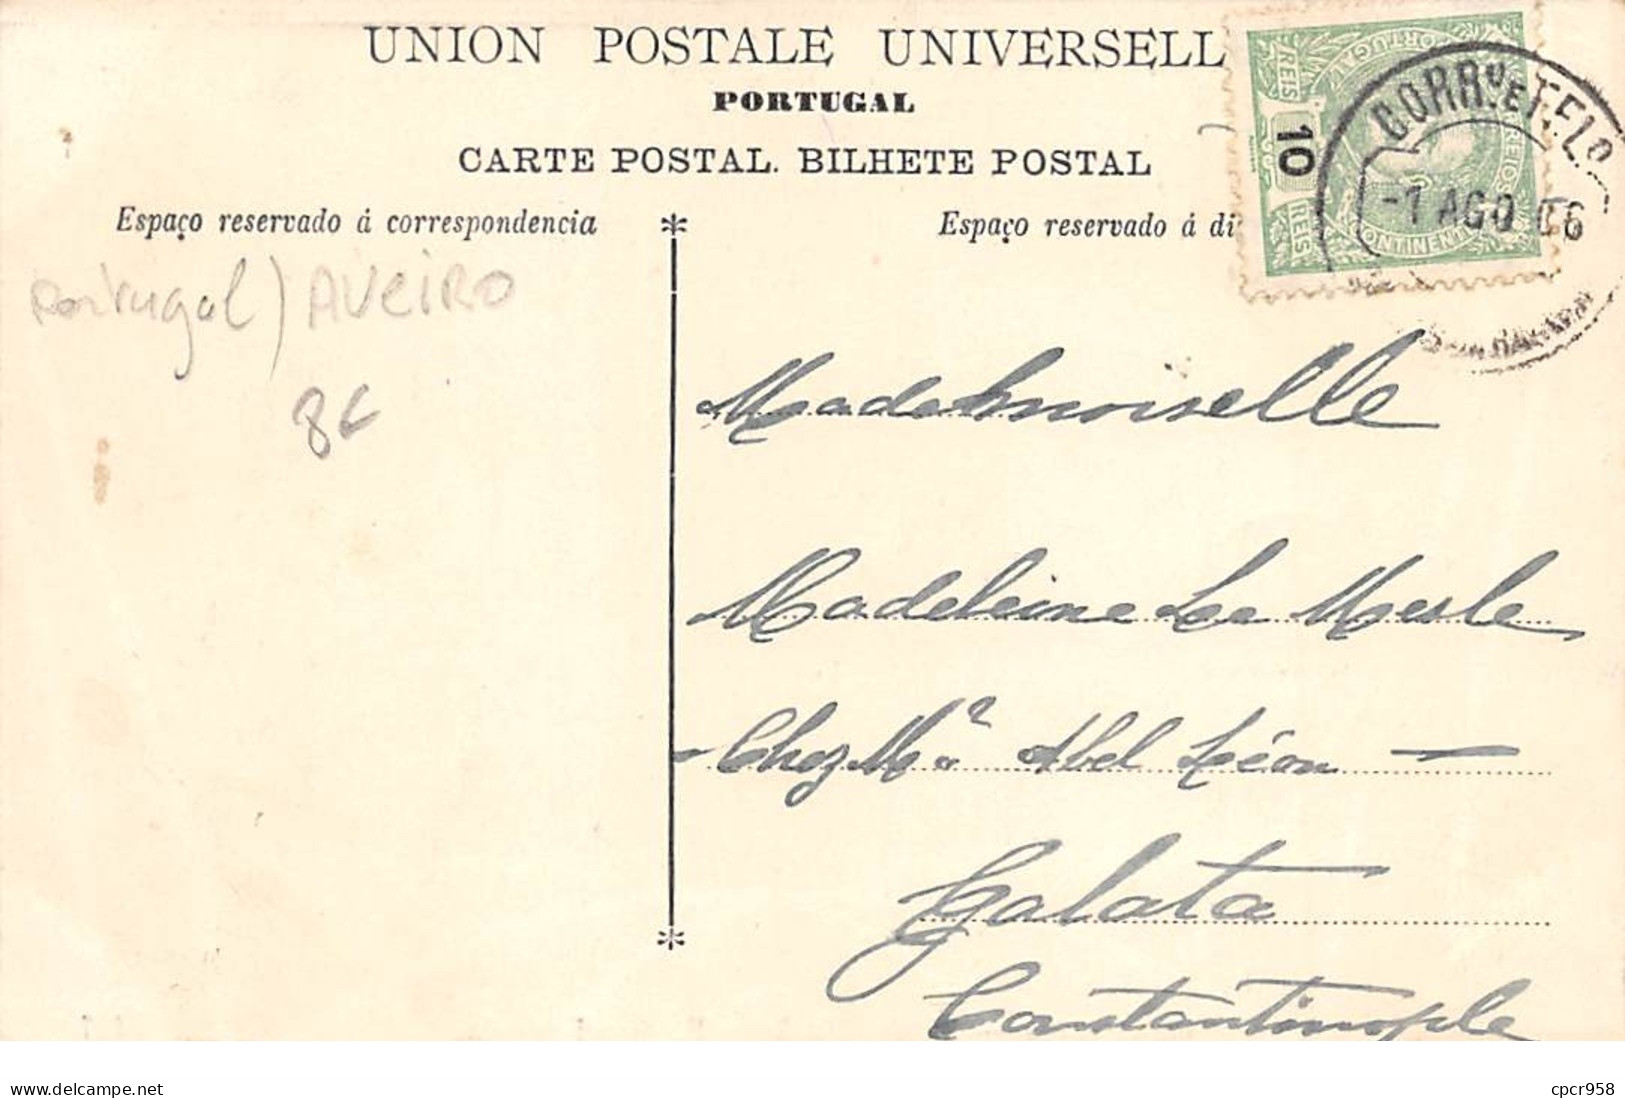 UNION POSTALE UNIVERSELL
PORTUGAL
CARTE POSTAL. BILHETE POSTAL
Espaço reservado á correspondencia
Espaço reservado á di
PORTUGAL
CORREIOS
CONTINENTE
REIS 10 REIS
CORRO. E TELO.
-1 AGO 06
Portugal) AVEIRO
8€
Mademoiselle
Madeleine Le Mesle
Chez Mr Abel Léon —
Galata
Constantinople
www.delcampe.net
cpcr958